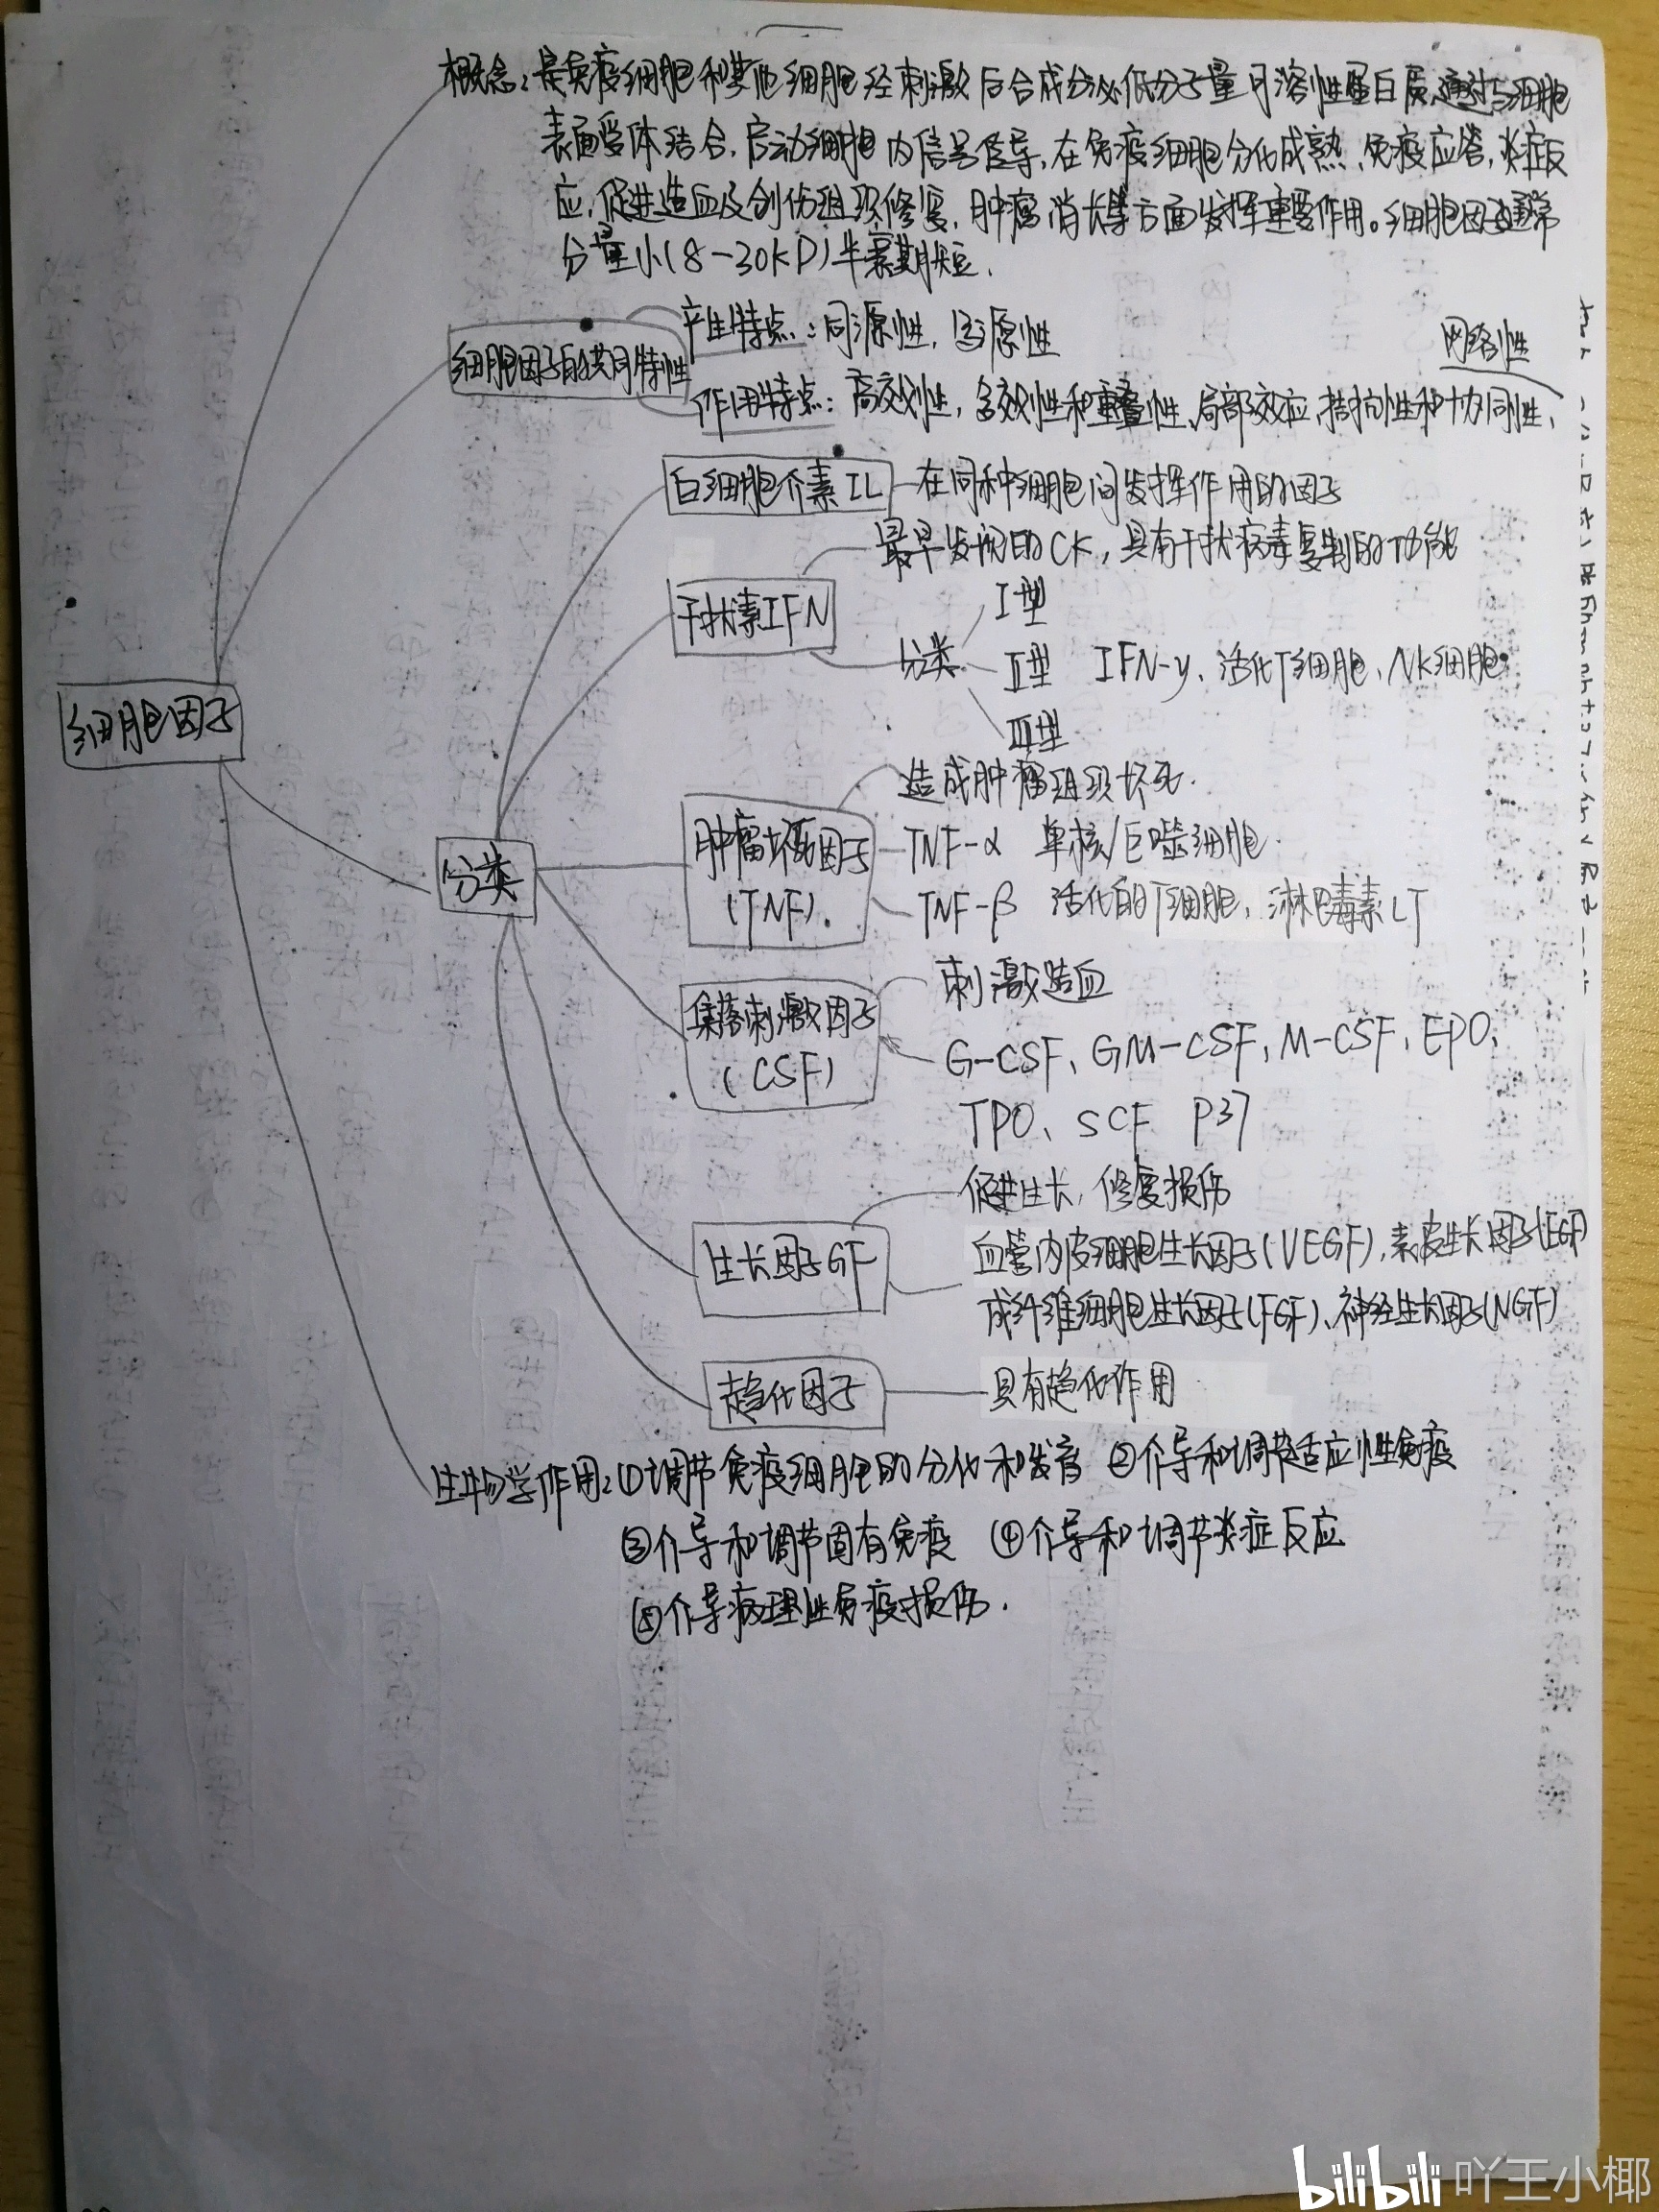 概念：是免疫细胞和其他细胞经刺激后合成分泌低分子量可溶性蛋白质,通过与细胞
表面受体结合,启动细胞内信号传导,在免疫细胞分化成熟、免疫应答,炎症反
应,促进造血及创伤组织修复,肿瘤消长等方面发挥重要作用。细胞因子通常
分量小(8-30KD)半衰期短.
细胞因子的共同特性
产生特点：同源性,多源性
网络性
作用特点：高效性,多效性和重叠性、局部效应,拮抗性和协同性、
白细胞介素IL
在同种细胞间发挥作用的因子
最早发现的CK,具有干扰病毒复制的功能
干扰素IFN
分类
I型
II型 IFN-γ、活化T细胞、NK细胞
III型
细胞因子
分类
造成肿瘤组织坏死.
肿瘤坏死因子
(TNF).
TNF-α 单核/巨噬细胞.
TNF-β 活化的T细胞,淋巴毒素LT
集落刺激因子
(CSF)
刺激造血
G-CSF、GM-CSF,M-CSF,EPO、
TPO、SCF P37
生长因子GF
促进生长,修复损伤
血管内皮细胞生长因子(VEGF),表皮生长因子(EGF)
成纤维细胞生长因子(FGF)、神经生长因子(NGF)
趋化因子
具有趋化作用
生物学作用：①调节免疫细胞的分化和发育 ②介导和调节适应性免疫
③介导和调节固有免疫 ④介导和调节炎症反应
⑤介导病理性免疫损伤.
bilibili 吖王小椰